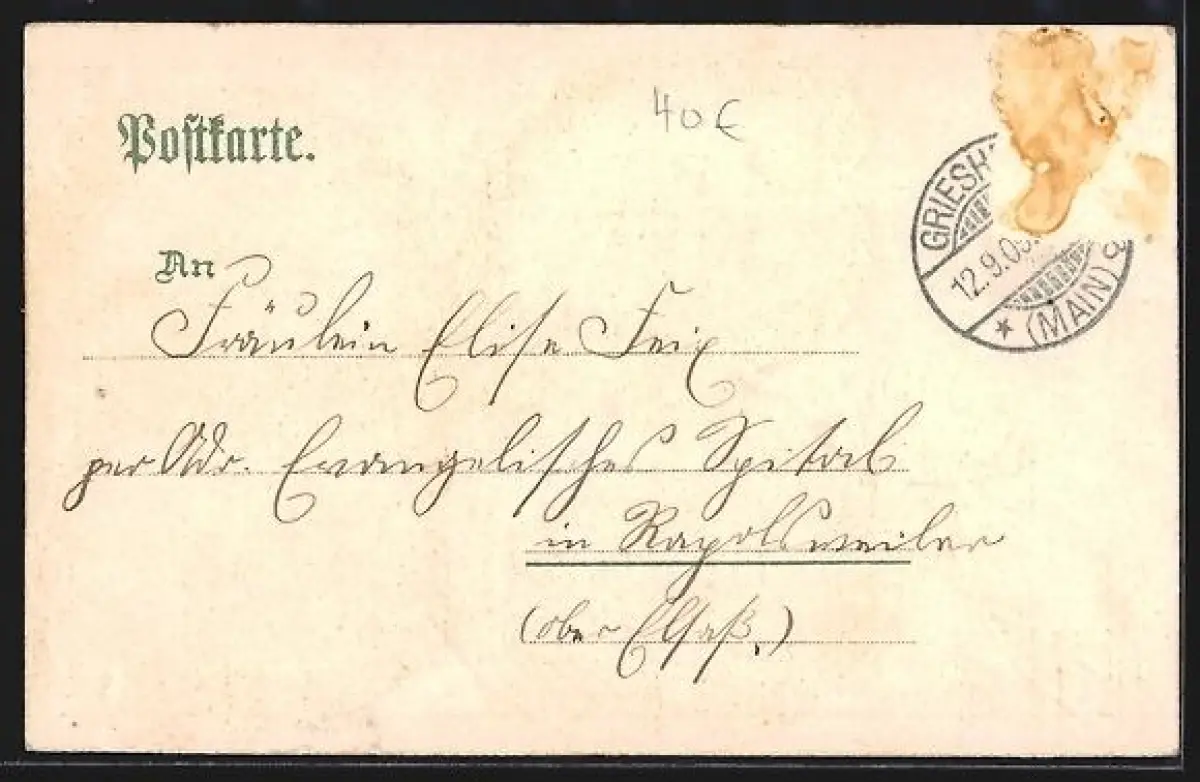 Postkarte.
40 €
GRIESH
12.9.05.
* (MAIN) a
An
Fräulein Elise Feix
per Adr. Evangelisches Spital
in Rapolsweiler
(ober Elsaß.)